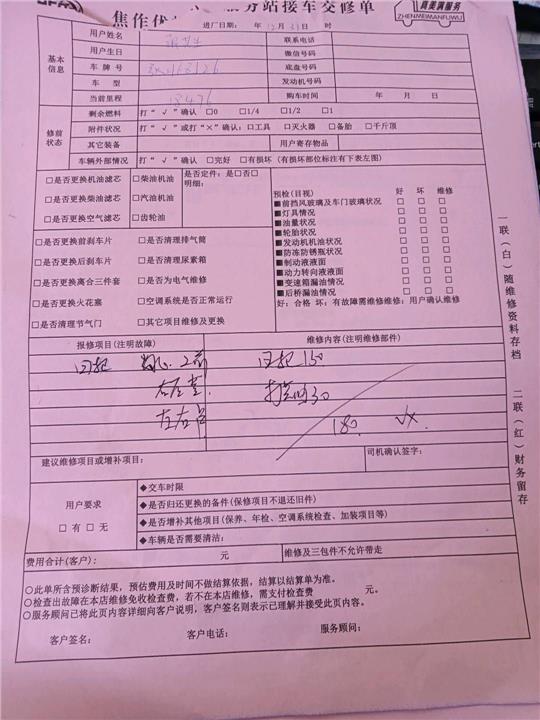 真美满服务
ZHENMEIMANFUWU
焦作优 务站接车交修单
进厂日期： 年 12 月 23 日 时
基本信息
用户姓名 联系电话
用户生日 微信号码
车牌号 底盘号码
车 型 发动机号码
当前里程 18476 购车时间 年 月 日
修前状态
剩余燃料 打“√”确认 □0 □1/4 □1/2 □1
附件状况 打“√”或打“×”确认：□工具 □灭火器 □备胎 □千斤顶
其它装备 用户寄存物品
车辆外部情况 打“√”确认 □完好 □有损坏（有损坏部位标注有下表左图）
□是否更换机油滤芯 □柴油机油 是否定件：是□否□
明细：
□是否更换柴油滤芯 □汽油机油
□是否更换空气滤芯 □齿轮油
□是否更换前刹车片 □是否清理排气筒
□是否更换后刹车片 □是否清理尿素箱
□是否更换离合三件套 □是否为电气维修
□是否更换火花塞 □空调系统是否正常运行
□是否清理节气门 □其它项目维修及更换
预检(目视) 好 坏 维修
■前挡风玻璃及车门玻璃状况 □ □ □
■灯具情况 □ □ □
■油量状况 □ □ □
■轮胎状况 □ □ □
■发动机机油状况 □ □ □
■防冻防锈瓶状况 □ □ □
■制动液液面 □ □ □
■动力转向液液面 □ □ □
■变速箱漏油情况 □ □ □
■后桥漏油情况 □ □ □
好：合格 坏：有故障需维修维修：用户确认维修
报修项目(注明故障) 维修内容(注明维修部件)
150
30
180
建议维修项目或增补项目： 司机确认签字：
用户要求
□有 □无
◆交车时限
◆是否归还更换的备件（保修项目不退还旧件）
◆是否增补其他项目(保养、年检、空调系统检查、加装项目等)
◆车辆是否需要清洁：
费用合计(客户)： 元 维修及三包件不允许带走
○此单所含预诊断结果，预估费用及时间不做结算依据，结算以结算单为准。
○检查出故障在本店维修免收检查费，若不在本店维修，需支付检查费 元。
○服务顾问已将此页内容详细向客户说明，客户签名则表示已理解并接受此页内容。
客户签名： 客户电话： 服务顾问：
一联（白）随维修资料存档 二联（红）财务留存